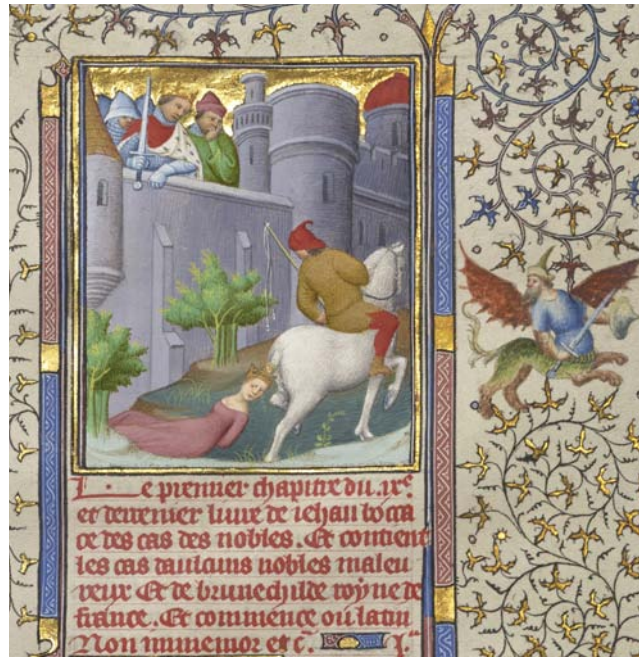 Le premier chapitre du .ixe.
et derrenier livre de iehan bocca
ce des cas des nobles. Et contient
les cas daulcuns nobles maleu
reux Et de brunechilde royne de
france. Et commence ou latin
Non immemor et c̃.